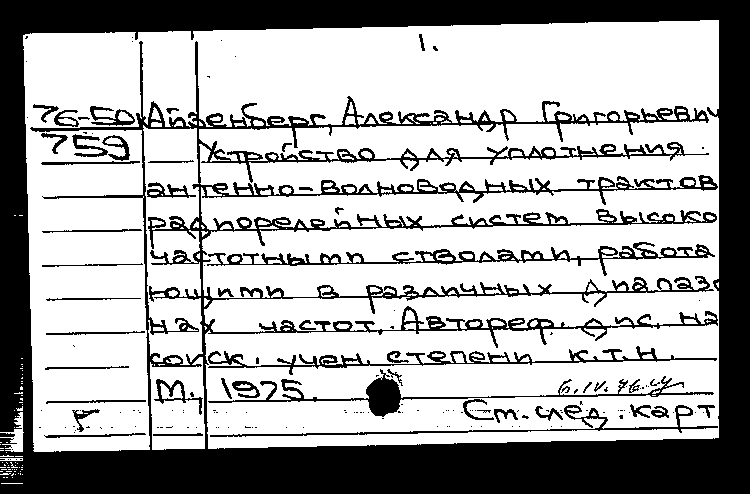 1.
76-50к Айзенберг, Александр Григорьевич
759 Устройство для уплотнения
антенно-волноводных трактов
радиорелейных систем высоко
частотными стволами, работа
ющими в различных диапазо
нах частот. Автореф. дис. на
соиск. учен. степени к.т.н.
М., 1975.
6.IV.76.
См. след. карт.